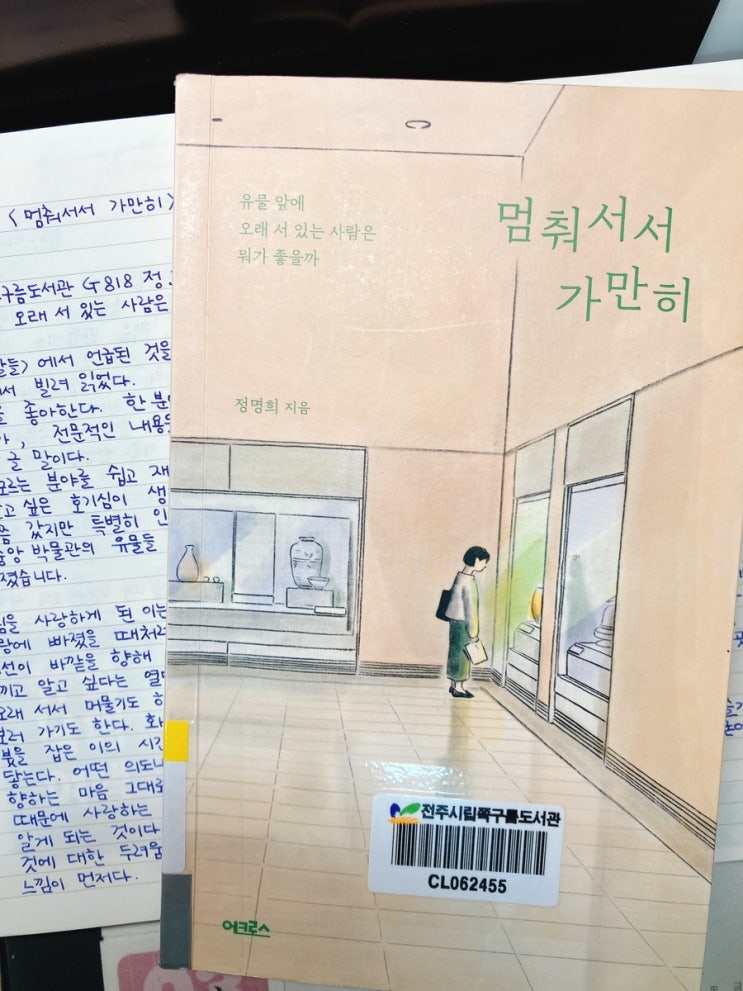 <멈춰서서 가만히>
구름도서관 G 818 정
오래 서 있는 사람은
들> 에서 언급된 것을
서 빌려 읽었다.
좋아한다. 한 분
전문적인 내용을
글 말이다.
모르는 분야를 쉽고 재
알고 싶은 호기심이 생
갔지만 특별히 인
중앙 박물관의 유물들
졌습니다.
을 사랑하게 된 이는
랑에 빠졌을 때처럼
선이 바깥을 향해
끼고 알고 싶다는 열
오래 서서 머물기도 하
보러 가기도 한다. 화
붓을 잡은 이의 시간
닿는다. 어떤 의도나
향하는 마음 그대로
때문에 사랑하는
알게 되는 것이다
것에 대한 두려움
느낌이 먼저다.
유물 앞에
오래 서 있는 사람은
뭐가 좋을까
멈춰서서
가만히
정명희 지음
전주시립쪽구름도서관
CL062455
어크로스